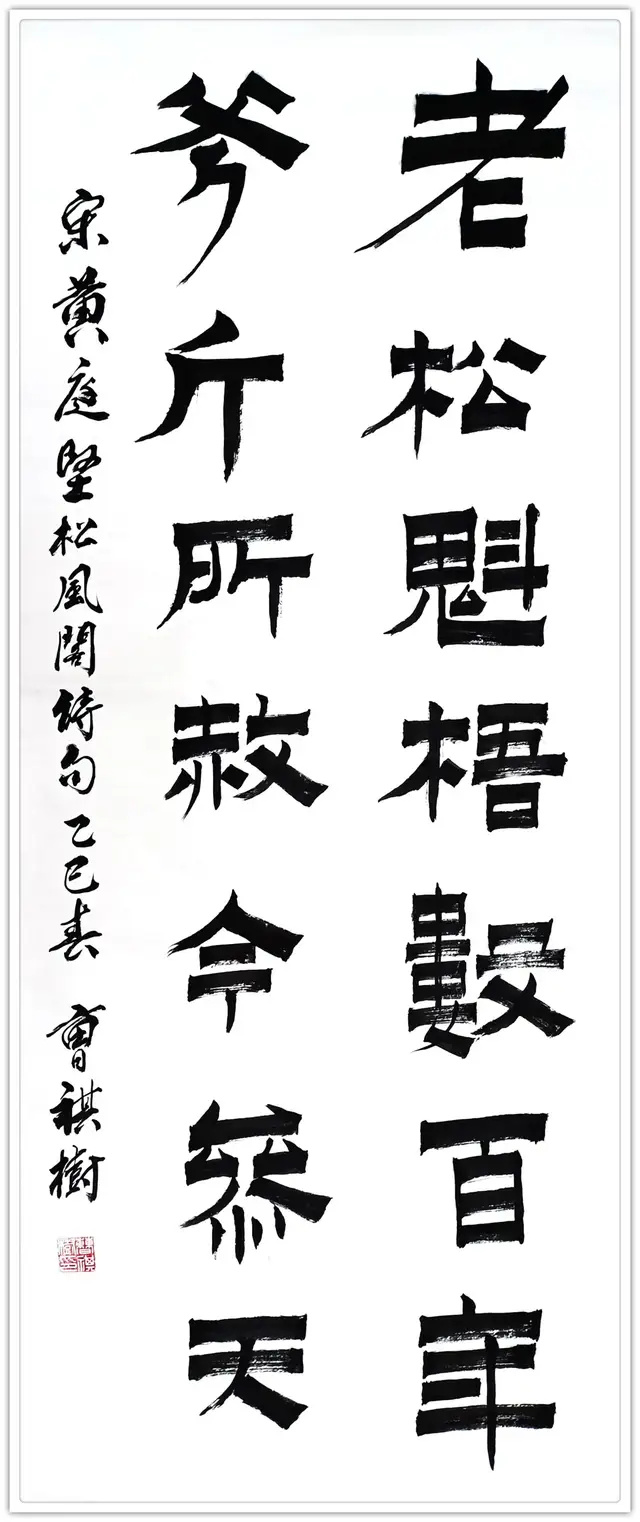 老松魁梧數百年
斧斤所赦今參天
宋黄庭堅松風閣詩句乙巳春 曹祺樹